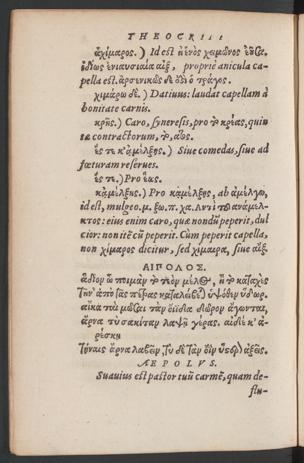 THEOCRITI
ἁχίμαρος.) Id est
ὁ δὲ ἐνιαυσιαία αἲξ, propriè anicula ca-
pella est. ἀρσενικῶς δὲ ὁ τράγος.
χιμάρω δὲ.) Datiuus: laudat capellam à
bonitate carnis.
κρῆς.) Caro, synæresis, pro τὸ κρέας, quin
tæ contractorum, τ, αος.
ἔς τε κ' ἀμέλξῃς.) Siue comedas, siue ad
fœturam reserues.
ἔς τε.) Pro ἕως.
κἀμέλξῃς.) Pro καμέλξῃς, ab ἀμέλγω,
id est, mulgeo. μ. ξω. π. χα. Ἀντὶ τοῦ ἀνάμελ-
κτος: eius enim caro, quæ nondũ peperit, dul
cior: non itẽ cũ peperit. Cùm peperit capella,
non χίμαρος dicitur, sed χίμαιρα, siue αἲξ.
ΑΙΠΟΛΟΣ.
ἅδιον ὦ ποιμὰν τὸ τεὸν μέλος, ἢ τὸ καταχὲς
τῆν' ἀπὸ τᾶς πέτρας καταλείβεται ὑψόθεν ὕδωρ.
αἴκα ταὶ μῶσαι τὰν οἴιδα δῶρον ἄγωνται,
ἄρνα τὺ σακίταν λαψῇ γέρας. αἰ δέ κ' ἀ-
ρέσκῃ
τήναις ἄρνα λαβεῖν, τὺ δὲ τὰν ὄϊν ὕστερον ἀξεῖς.
ÆPOLVS.
Suauius est pastor tuũ carmẽ, quam de-
flu-